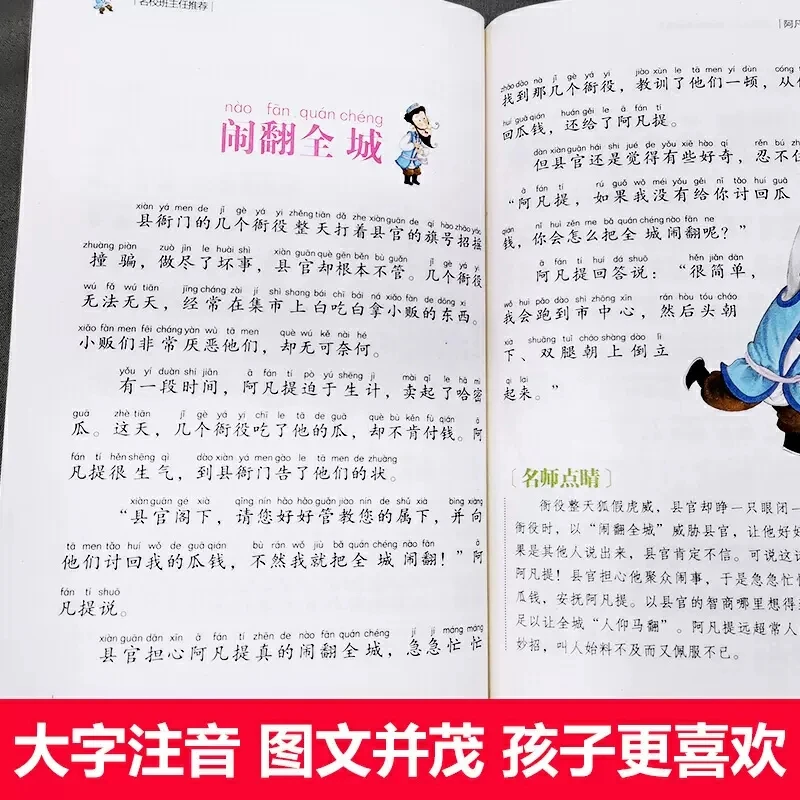 名校班主任推荐
nào fān quán chéng
闹翻全城
xiàn yá men de jǐ gè yá yì zhěng tiān dǎ zhe xiàn guān de qí hào zhāo yáo
县衙门的几个衙役整天打着县官的旗号招摇
zhuàng piàn zuò jìn le huài shì xiàn guān què gēn běn bù guǎn jǐ gè yá yì
撞骗，做尽了坏事，县官却根本不管。几个衙役
wú fǎ wú tiān jīng cháng zài jí shì shang bái chī bái ná xiǎo fàn de dōng xi
无法无天，经常在集市上白吃白拿小贩的东西。
xiǎo fàn men fēi cháng yàn wù tā men què wú kě nài hé
小贩们非常厌恶他们，却无可奈何。
yǒu yí duàn shí jiān ā fán tí pò yú shēng jì mài qǐ le hā mì
有一段时间，阿凡提迫于生计，卖起了哈密
guā zhè tiān jǐ gè yá yì chī le tā de guā què bù kěn fù qián ā
瓜。这天，几个衙役吃了他的瓜，却不肯付钱。阿
fán tí hěn shēng qì dào xiàn yá men gào le tā men de zhuàng
凡提很生气，到县衙门告了他们的状。
xiàn guān gé xià qǐng nín hǎo hǎo guǎn jiào nín de shǔ xià bìng xiàng
“县官阁下，请您好好管教您的属下，并向
tā men tǎo huí wǒ de guā qián bù rán wǒ jiù bǎ quán chéng nào fān ā
他们讨回我的瓜钱，不然我就把全城闹翻！”阿
fán tí shuō
凡提说。
xiàn guān dān xīn ā fán tí zhēn de nào fān quán chéng jí jí máng máng
县官担心阿凡提真的闹翻全城，急急忙忙
阿凡
zhǎo dào nà jǐ gè yá yì jiào xùn le tā men yí dùn cóng tā
找到那几个衙役，教训了他们一顿，从他
huí guā qián huán gěi le ā fán tí
回瓜钱，还给了阿凡提。
dàn xiàn guān hái shi jué de yǒu xiē hào qí rěn bú zhù
但县官还是觉得有些好奇，忍不住
ā fán tí rú guǒ wǒ méi yǒu gěi nǐ tǎo huí guā
“阿凡提，如果我没有给你讨回瓜
qián nǐ huì zěn me bǎ quán chéng nào fān ne
钱，你会怎么把全城闹翻呢？”
ā fán tí huí dá shuō hěn jiǎn dān
阿凡提回答说：“很简单，
wǒ huì pǎo dào shì zhōng xīn rán hòu tóu cháo
我会跑到市中心，然后头朝
xià shuāng tuǐ cháo shàng dào lì
下、双腿朝上倒立
qǐ lai
起来。”
名师点睛
衙役整天狐假虎威，县官却睁一只眼闭一
衙役时，以“闹翻全城”威胁县官，让他好好
果是其他人说出来，县官肯定不信。可说这话
阿凡提！县官担心他聚众闹事，于是急急忙忙
瓜钱，安抚阿凡提。以县官的智商哪里想得
足以让全城“人仰马翻”。阿凡提远超常人
妙招，叫人始料不及而又佩服不已。
大字注音 图文并茂 孩子更喜欢